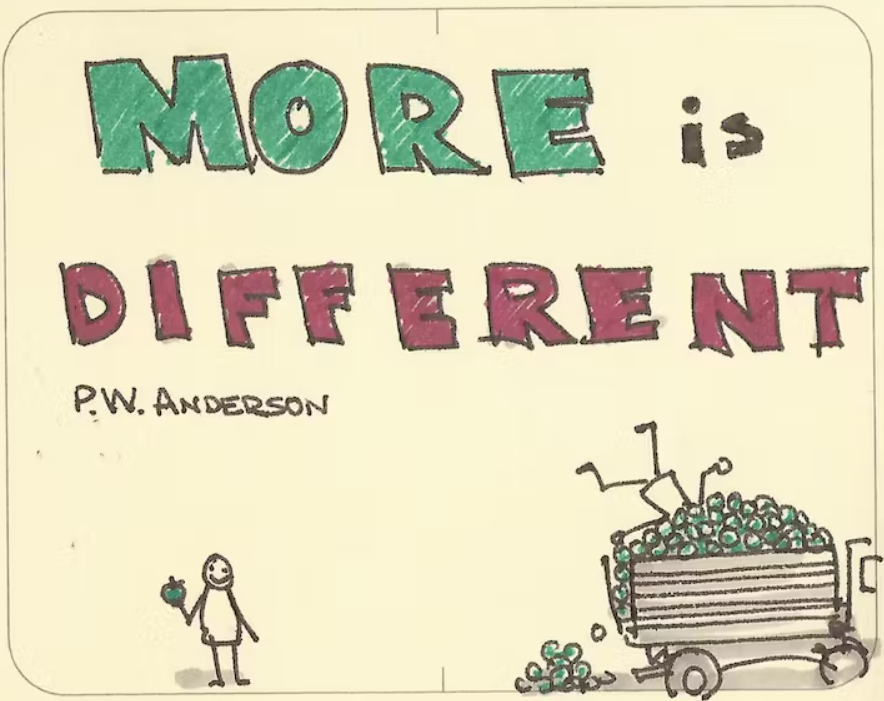 MORE is
DIFFERENT
P.W. ANDERSON